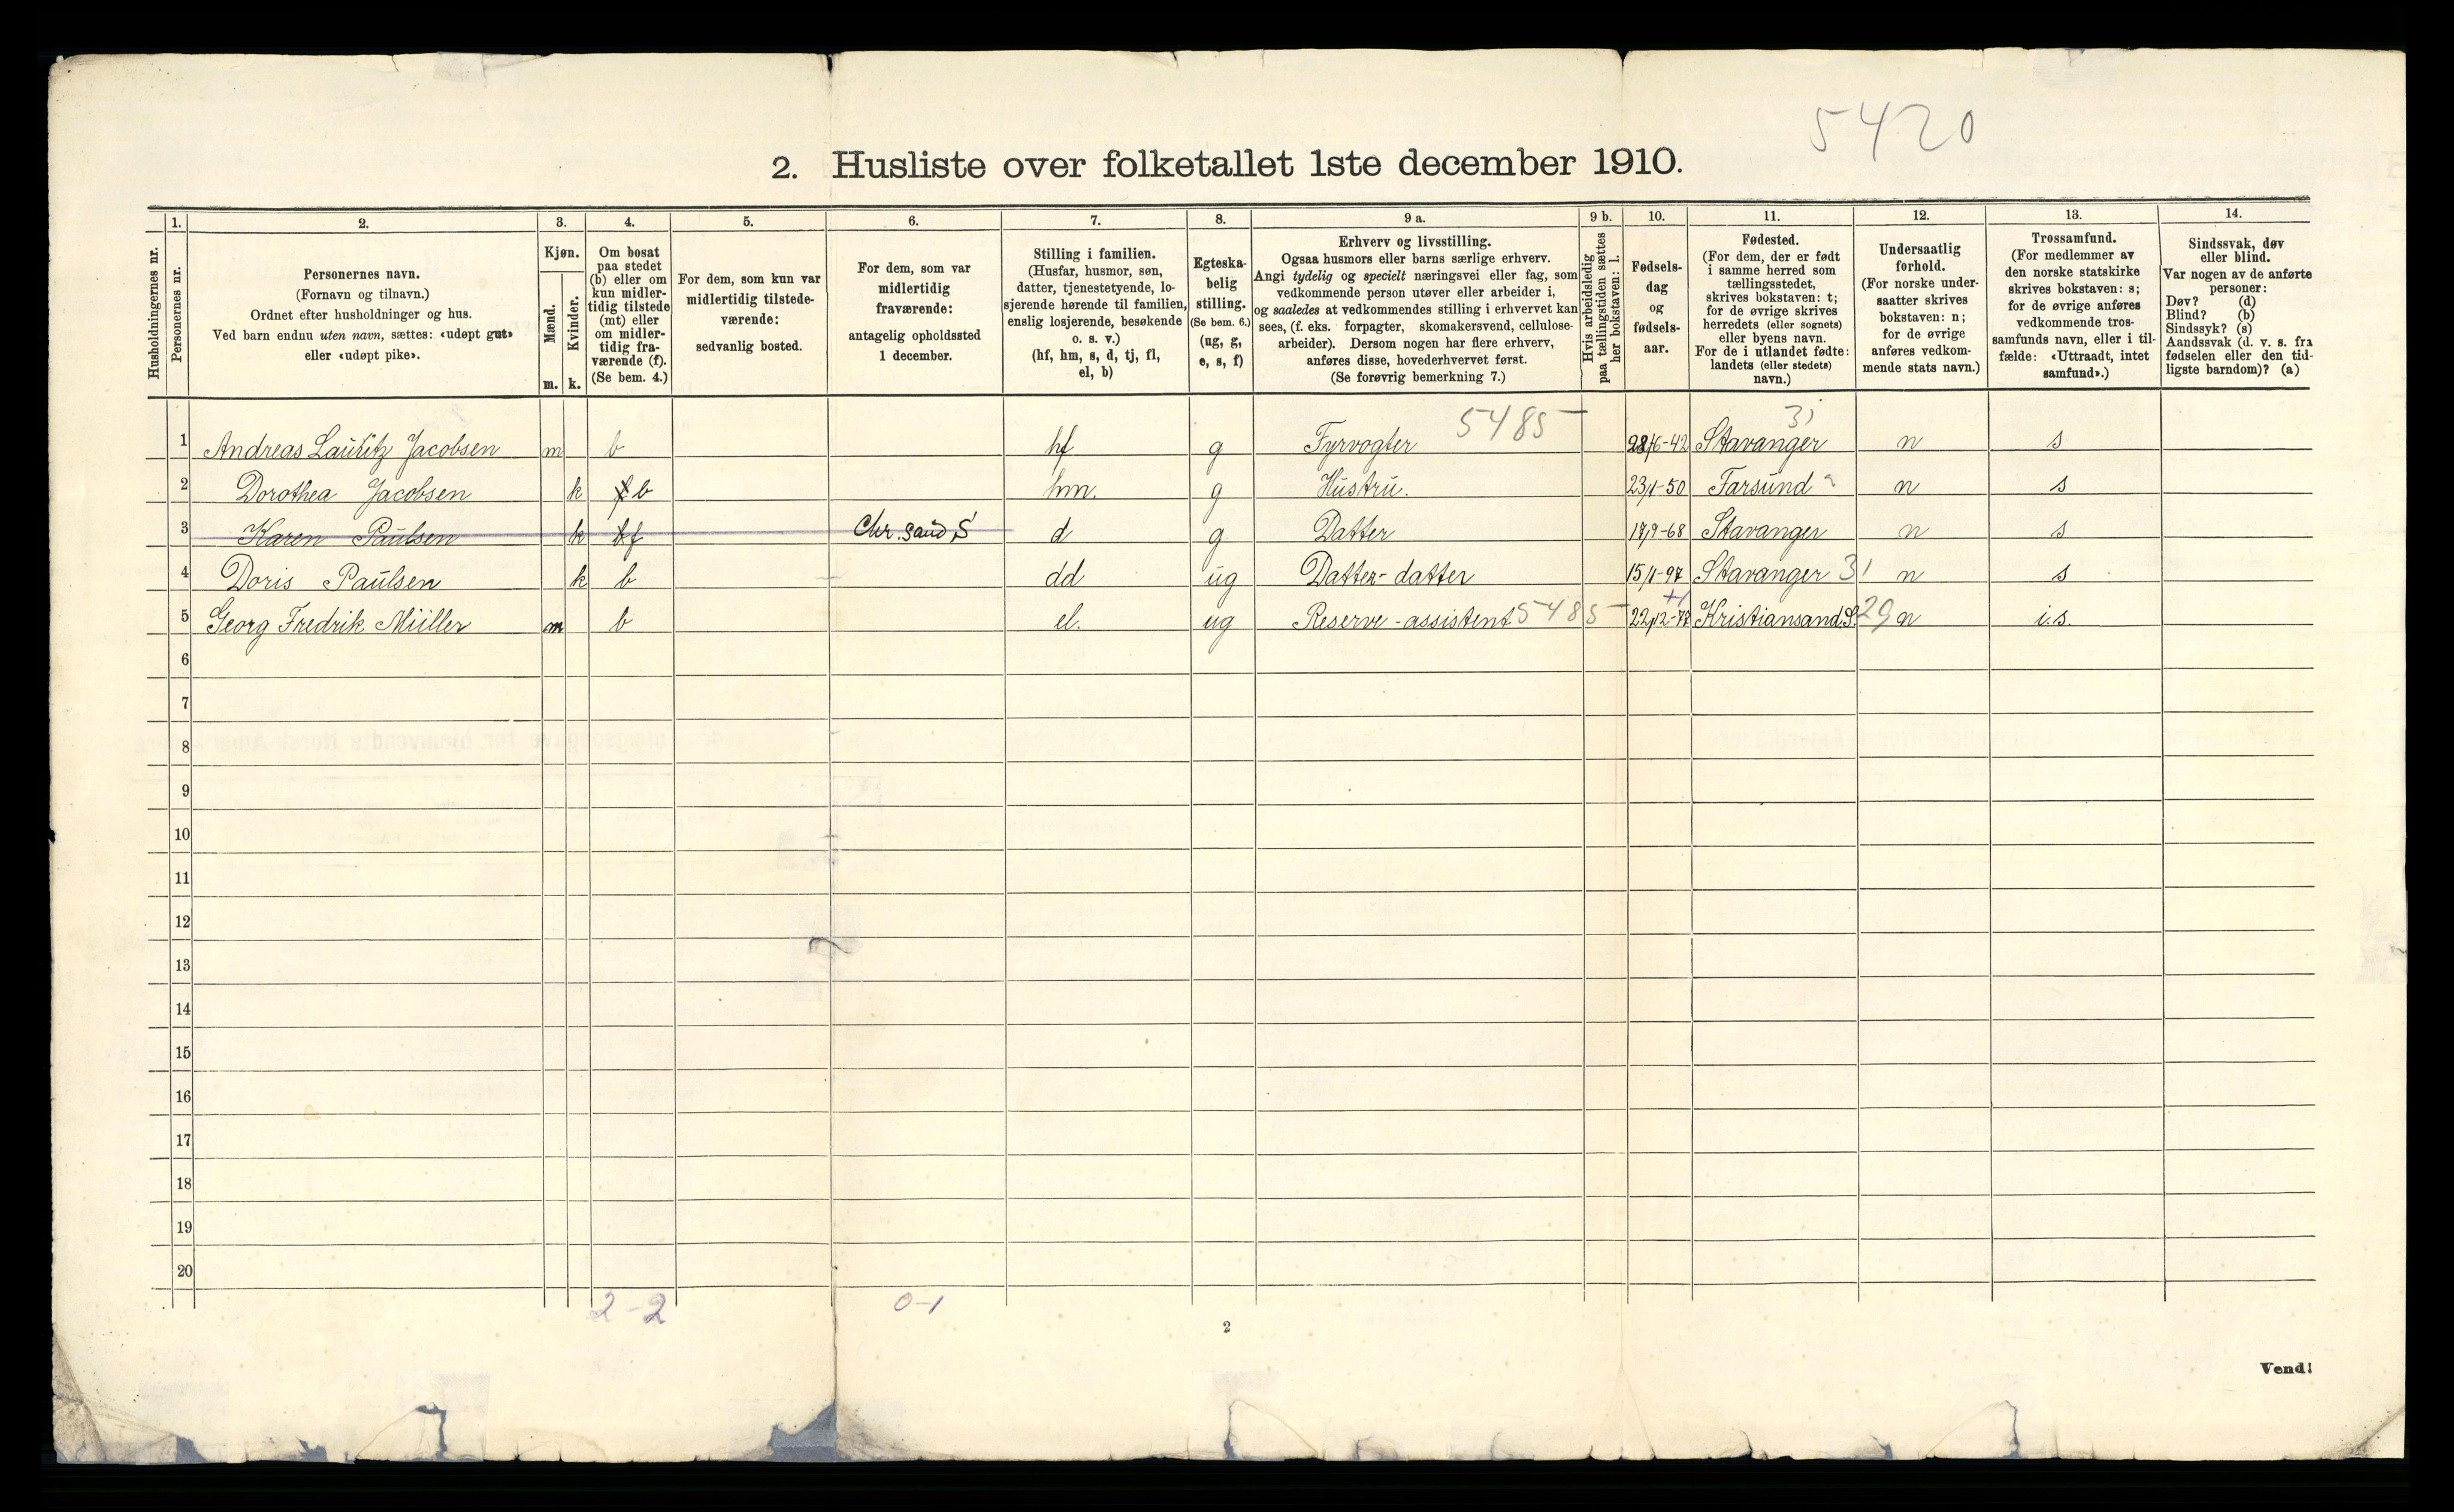 5420
2. Husliste over folketallet 1ste december 1910.
1. 2. 3. 4. 5. 6. 7. 8. 9 a. 9 b. 10. 11. 12. 13. 14.
Husholdningernes nr.
Personernes nr.
Personernes navn.
(Fornavn og tilnavn.)
Ordnet efter husholdninger og hus.
Ved barn endnu uten navn, sættes: «udøpt gut»
eller «udøpt pike».
Kjøn.
Mænd.
Kvinder.
m. k.
Om bosat
paa stedet
(b) eller om
kun midler-
tidig tilstede
(mt) eller
om midler-
tidig fra-
værende (f).
(Se bem. 4.)
For dem, som kun var
midlertidig tilstede-
værende:
sedvanlig bosted.
For dem, som var
midlertidig
fraværende:
antagelig opholdssted
1 december.
Stilling i familien.
(Husfar, husmor, søn,
datter, tjenestetyende, lo-
sjerende hørende til familien,
enslig losjerende, besøkende
o. s. v.)
(hf, hm, s, d, tj, fl,
el, b)
Egteska-
belig
stilling.
(Se bem. 6.)
(ug, g,
e, s, f)
Erhverv og livsstilling.
Ogsaa husmors eller barns særlige erhverv.
Angi tydelig og specielt næringsvei eller fag, som
vedkommende person utøver eller arbeider i,
og saaledes at vedkommendes stilling i erhvervet kan
sees, (f. eks. forpagter, skomakersvend, cellulose-
arbeider). Dersom nogen har flere erhverv,
anføres disse, hovederhvervet først.
(Se forøvrig bemerkning 7.)
Hvis arbeidsledig
paa tællingstiden sættes
her bokstaven: l.
Fødsels-
dag
og
fødsels-
aar.
Fødested.
(For dem, der er født
i samme herred som
tællingsstedet,
skrives bokstaven: t;
for de øvrige skrives
herredets (eller sognets)
eller byens navn.
For de i utlandet fødte:
landets (eller stedets)
navn.)
Undersaatlig
forhold.
(For norske under-
saatter skrives
bokstaven: n;
for de øvrige
anføres vedkom-
mende stats navn.)
Trossamfund.
(For medlemmer av
den norske statskirke
skrives bokstaven: s;
for de øvrige anføres
vedkommende tros-
samfunds navn, eller i til-
fælde: «Uttraadt, intet
samfund».)
Sindssvak, døv
eller blind.
Var nogen av de anførte
personer:
Døv? (d)
Blind? (b)
Sindssyk? (s)
Aandssvak (d. v. s. fra
fødselen eller den tid-
ligste barndom)? (a)
5485 31
1 Andreas Lauritz Jacobsen m b hf g Fyrvogter 28/6-42 Stavanger n s
2 Dorothea Jacobsen k f b hm. g Hustru. 23/1-50 Farsund n s
3 Karen Paulsen k b f Chr.sand S d g Datter 17/9-68 Stavanger n s
4 Doris Paulsen k b dd ug Datter-datter 15/1-97 Stavanger 31 n s
5 Georg Fredrik Müller m b el. ug Reserve-assistent 5485 22/12-77 Kristiansand.S. 29 n i.s.
6
7
8
9
10
11
12
13
14
15
16
17
18
19
20
2-2 0-1
2
Vend!